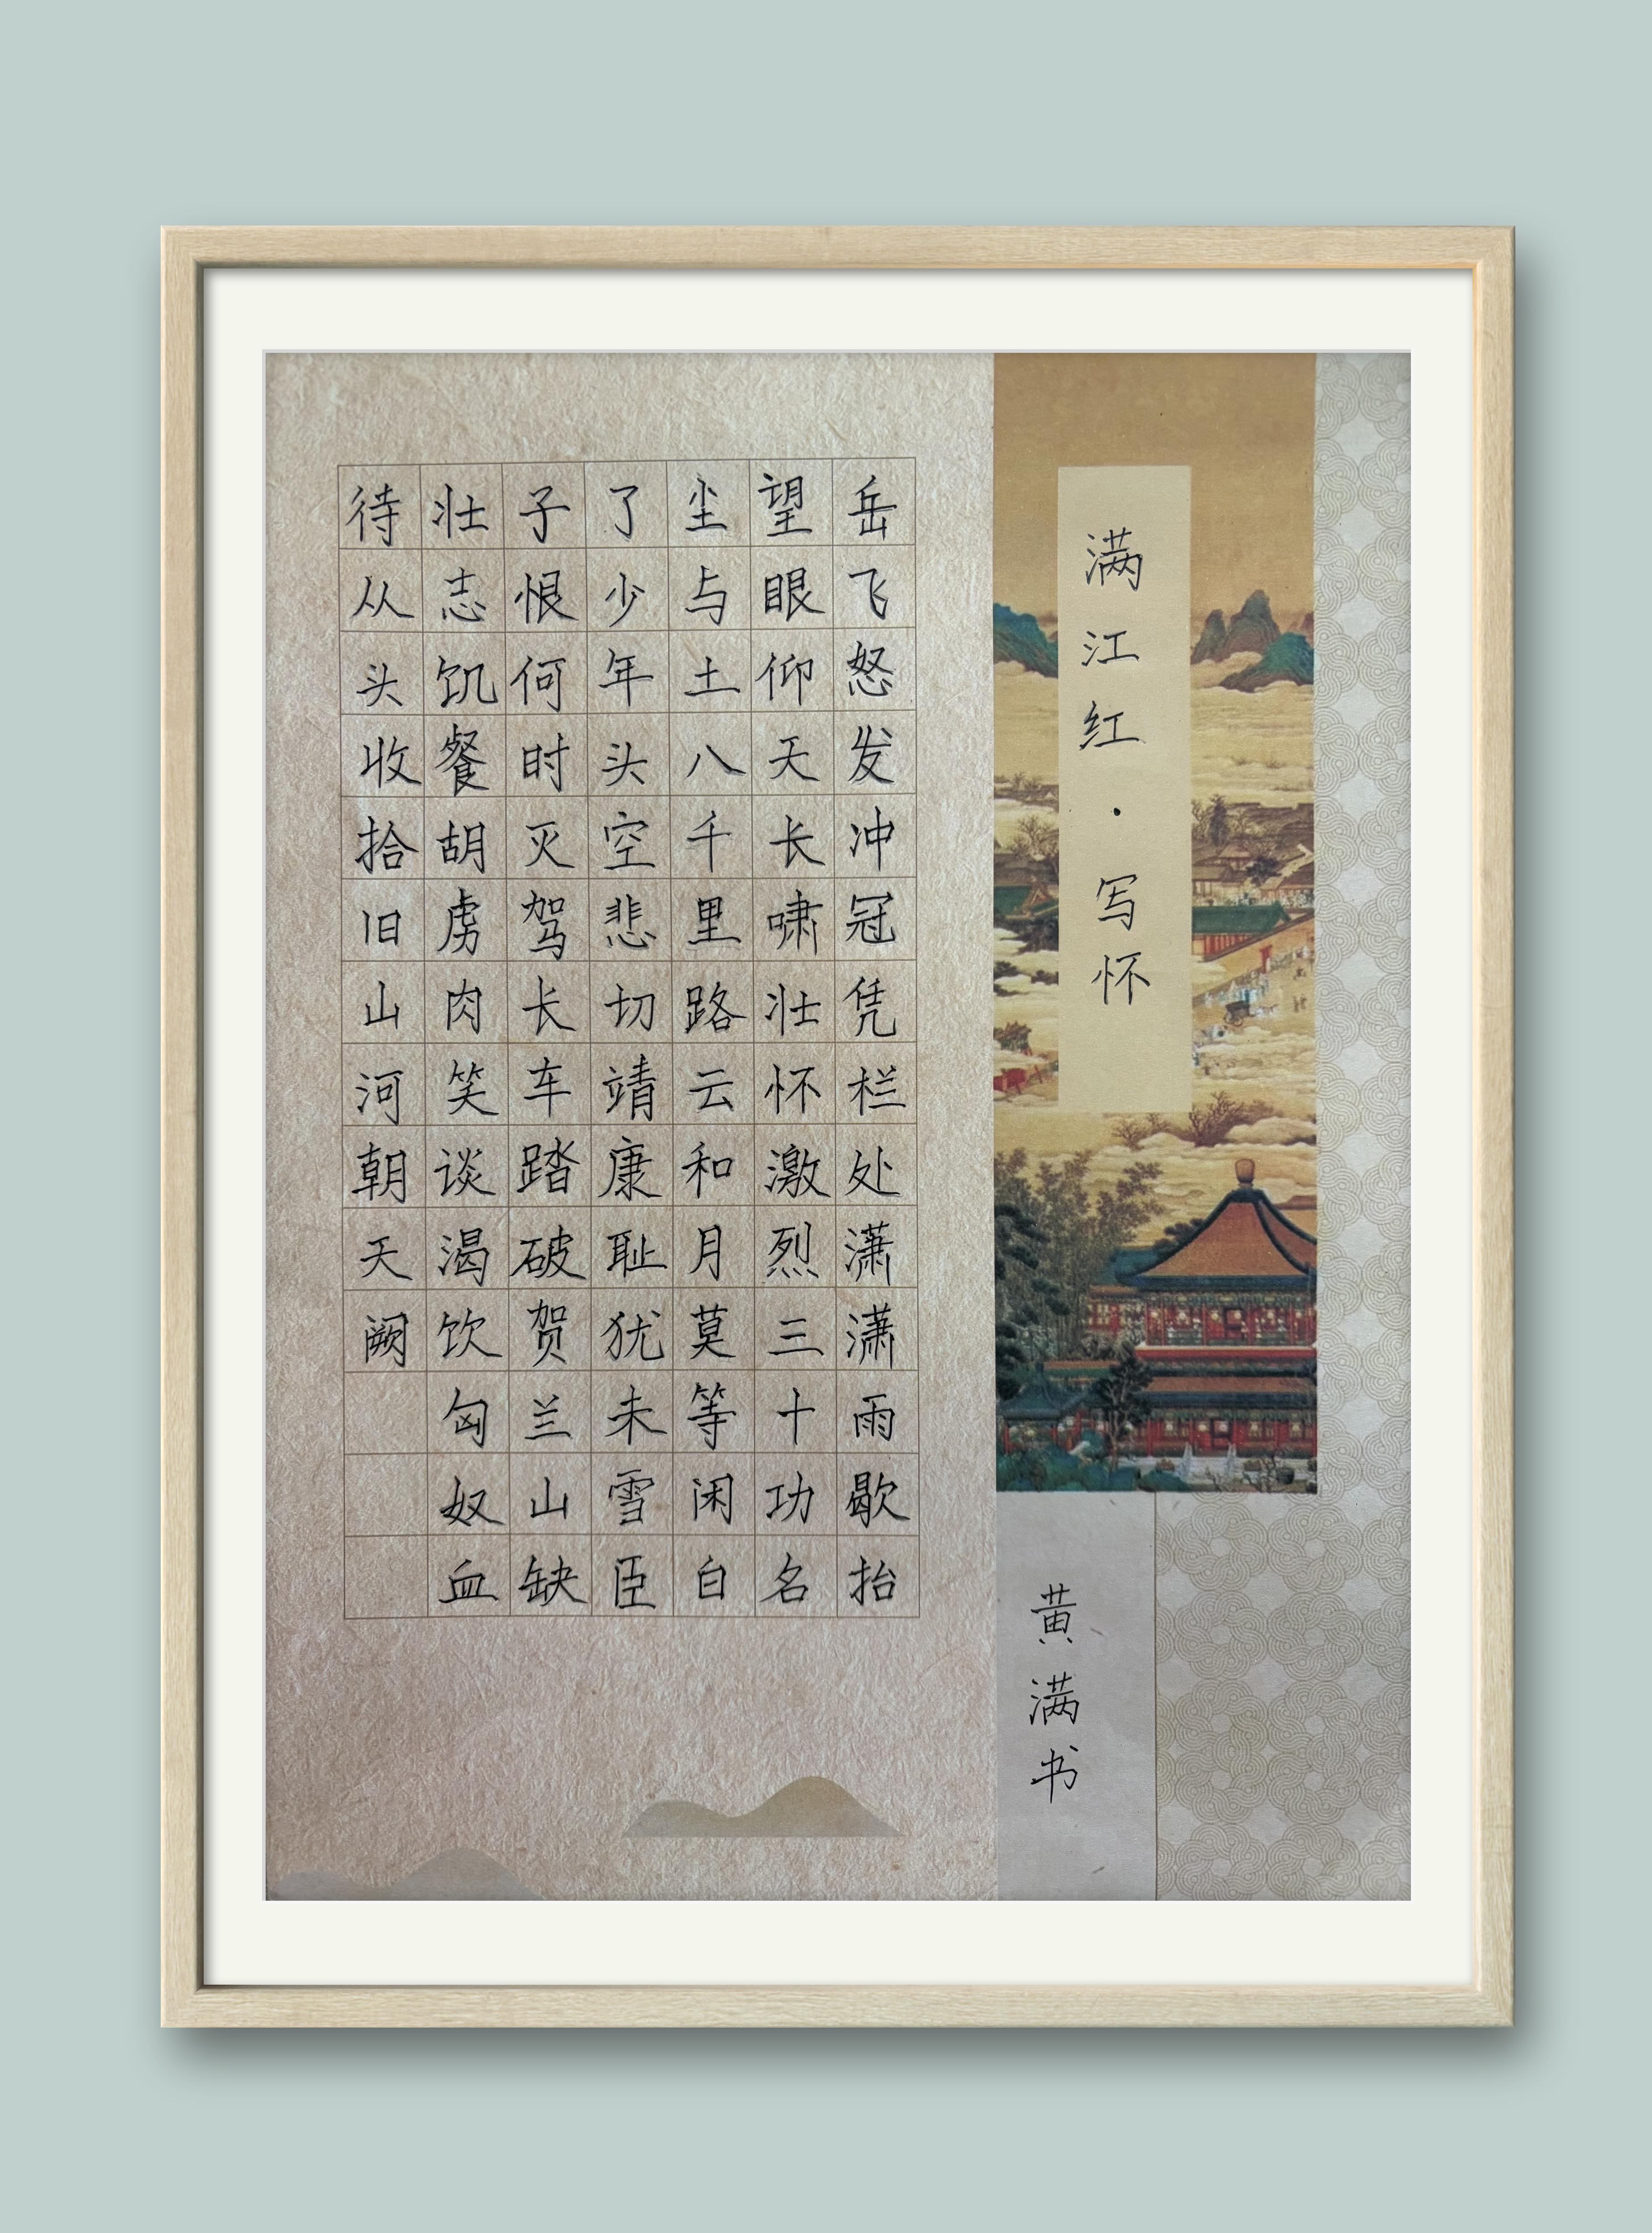 满江红·写怀
岳飞怒发冲冠凭栏处潇潇雨歇抬
望眼仰天长啸壮怀激烈三十功名
尘与土八千里路云和月莫等闲白
了少年头空悲切靖康耻犹未雪臣
子恨何时灭驾长车踏破贺兰山缺
壮志饥餐胡虏肉笑谈渴饮匈奴血
待从头收拾旧山河朝天阙
黄满书